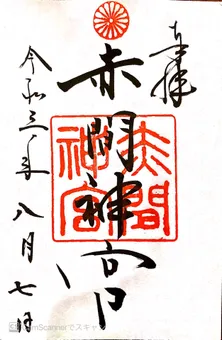 奉拝
赤間神宮
赤間
神宮
令和三年
八月七日
CamScannerでスキャン